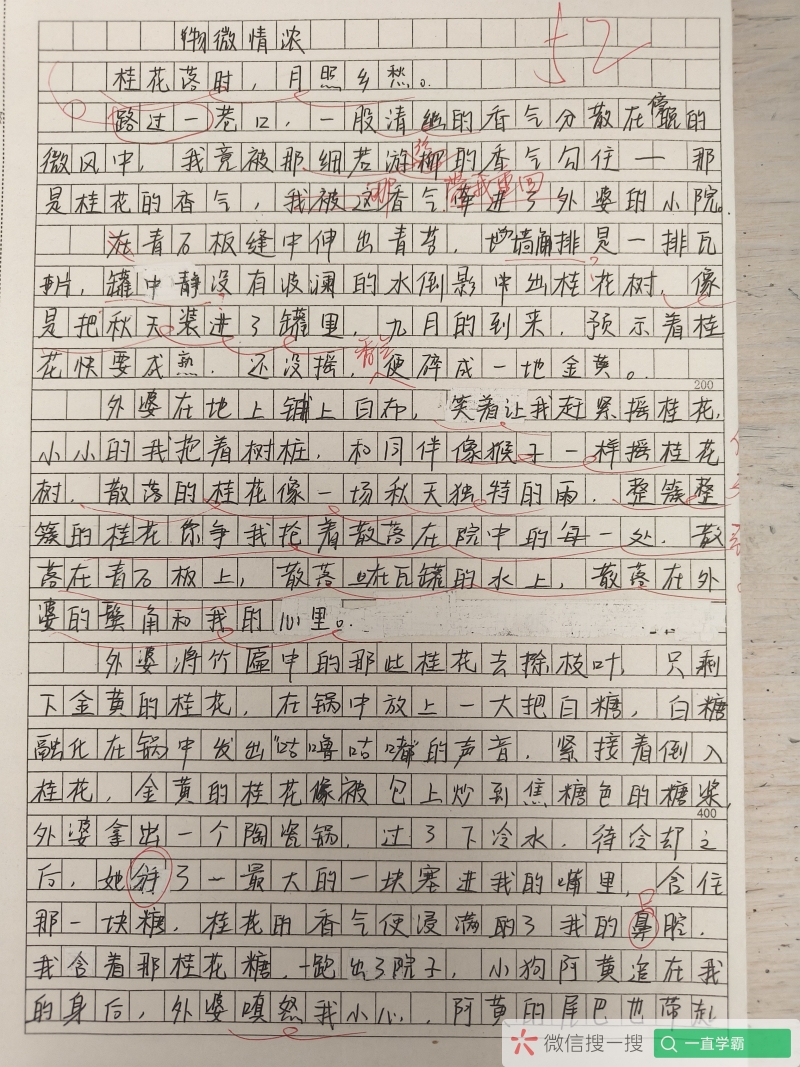 52
物微情浓
桂花落时，月照乡愁。
路过一巷口，一股清幽的香气分散在傍晚的
微风中，我竟被那细若游柳的香气勾住——那
丝
是桂花的香气，我被这香气牵进了外婆的小院。
那 带我重回
在青石板缝中伸出青苔，墙角排是一排瓦
片，罐中静没有波澜的水倒影中出桂花树，像
是把秋天装进了罐里，九月的到来，预示着桂
花快要成熟．还没摇，便碎成一地金黄。
200
外婆在地上铺上白布，笑着让我赶紧摇桂花，
小小的我把着树桩，和同伴像猴子一样摇桂花
树．散落的桂花像一场秋天独特的雨．整簇整
簇的桂花你争我抢着散落在院中的每一处．散
落在青石板上，散落在瓦罐的水上，散落在外
婆的鬓角和我的心里。
外婆将竹匾中的那些桂花去掉枝叶，只剩
下金黄的桂花，在锅中放上一大把白糖，白糖
融化在锅中发出“咕噜咕嘟”的声音．紧接着倒入
桂花，金黄的桂花像被包上炒到焦糖色的糖浆，
400
外婆拿出一个陶瓷锅，过了下冷水．待冷却之
后，她掰了一最大的一块塞进我的嘴里，含住
那一块糖，桂花的香气便浸满的了我的鼻腔．
我含着那桂花糖．一跑出了院子，小狗阿黄追在我
的身后，外婆嗔怒我小心．阿黄的尾巴也带起
微信搜一搜 一直学霸